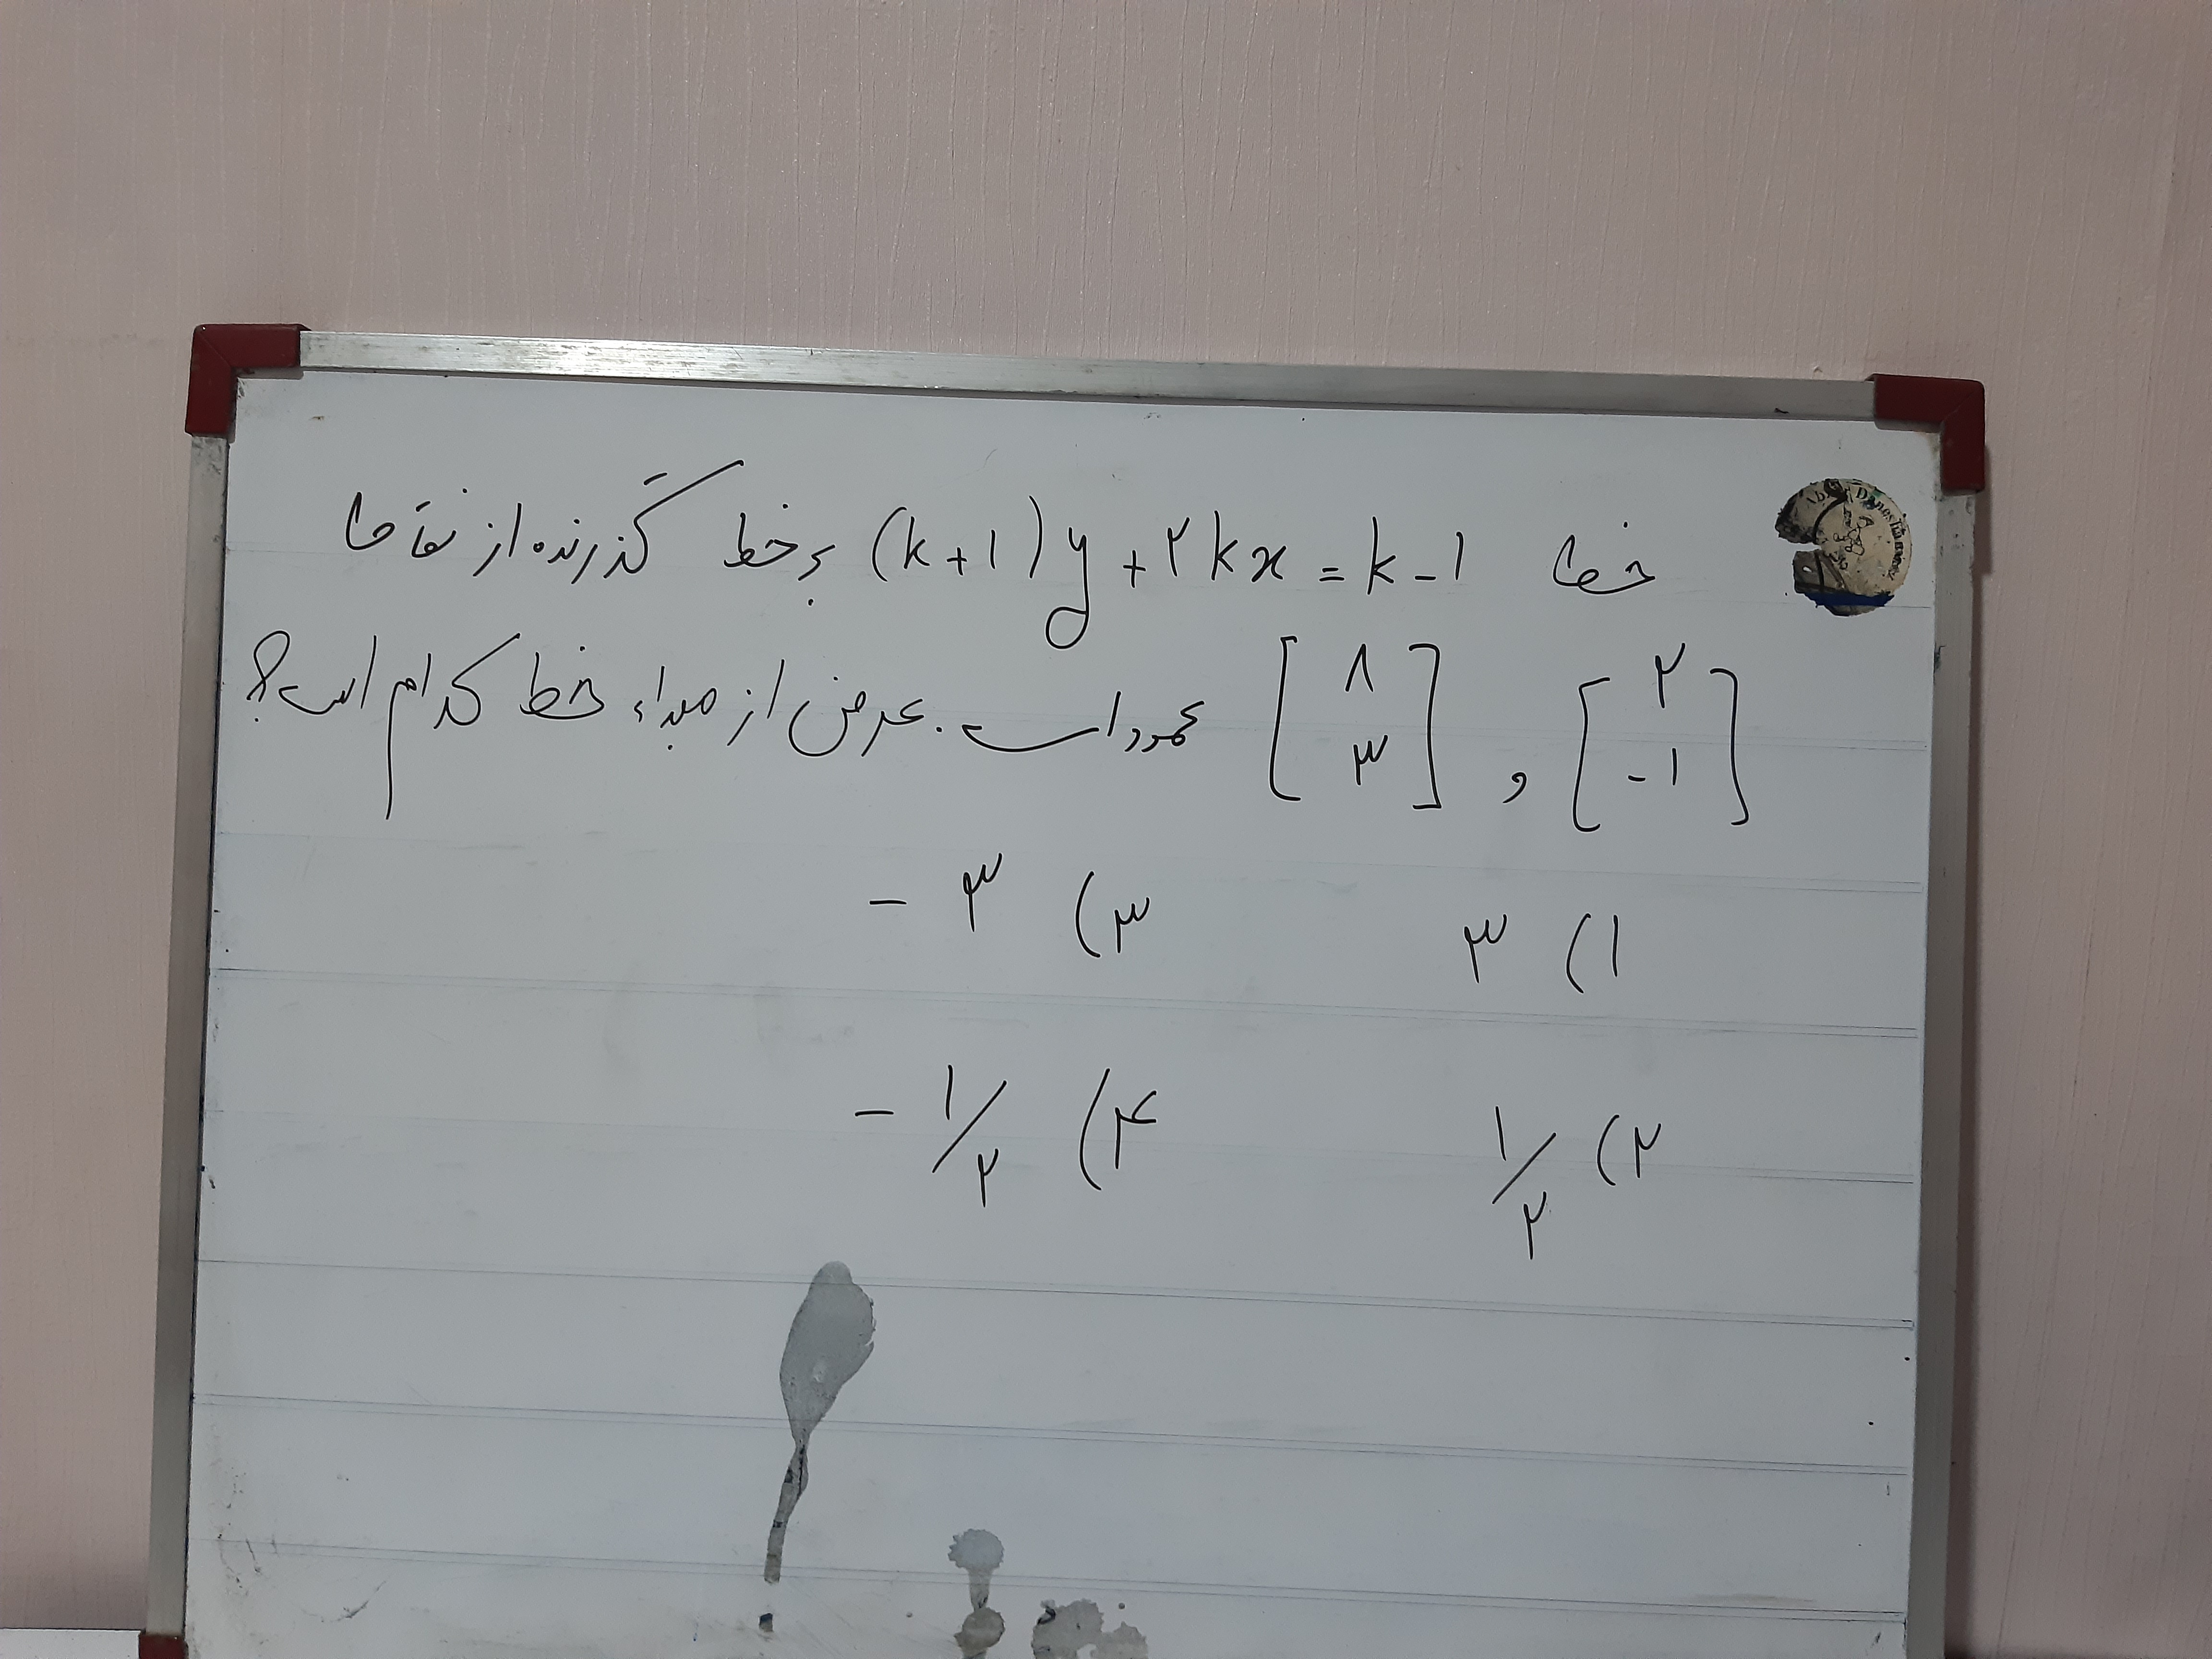 خط (k+۱)y+۲kx=k-۱ بر خط گذرنده از نقاط
[۲ -۱] و [۸ ۳] عمود است. عرض از مبداء خط کدام است؟
۱) ۳ ۳) -۳
۲) ۱/۲ ۴) -۱/۲